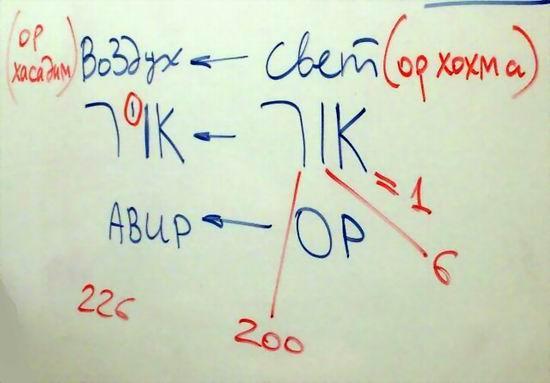 (ор хасадим) Воздух ← Свет (ор хохма)
אויר ← אור
= 1
АВИР ← ОР
6
226
200